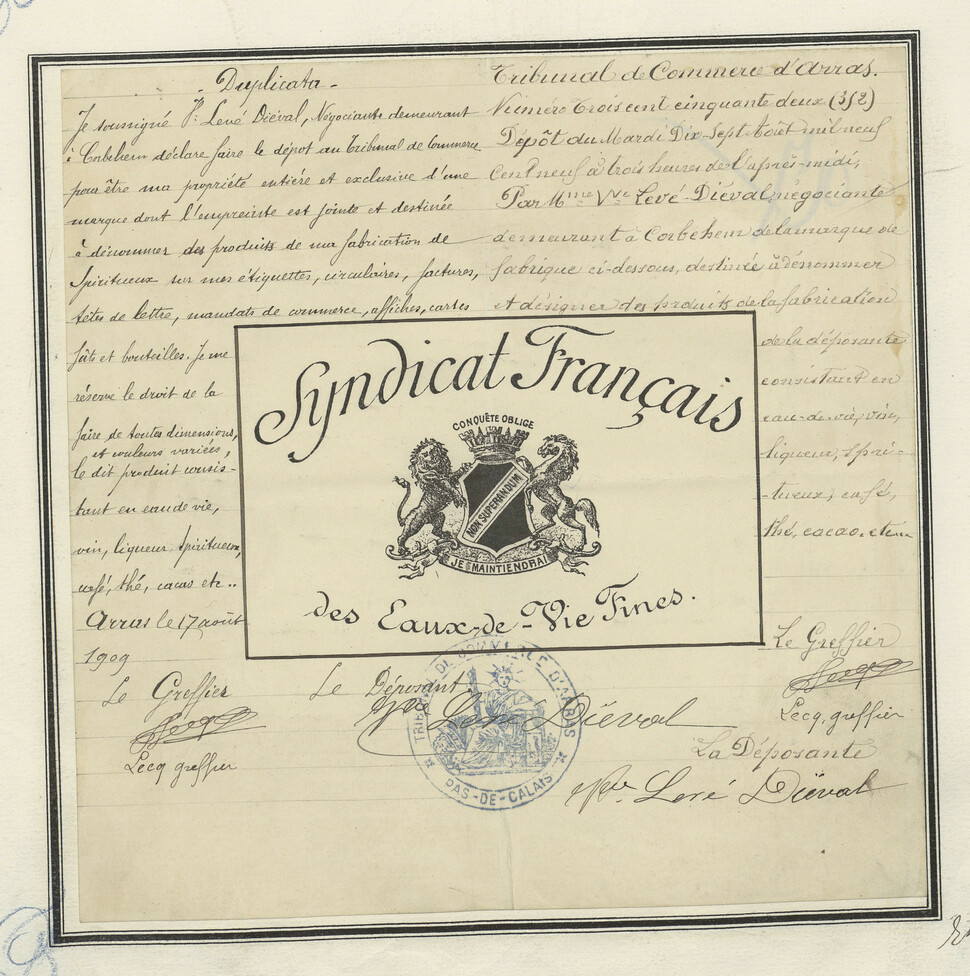 - Duplicata -
Je soussigné Vve Levé Diéval, Négociante demeurant
à Corbehem déclare faire le dépot au Tribunal de Commerce
pour être ma propriété entière et exclusive d'une
marque dont l'empreinte est jointe et destinée
à dénommer des produits de ma fabrication de
Spiritueux sur mes étiquettes, circulaires, factures,
têtes de lettre, mandats de commerce, affiches, cartes
fûts et bouteilles. Je me
réserve le droit de la
faire de toutes dimensions,
et couleurs variées,
le dit produit consis-
tant en eau de vie,
vin, liqueur, Spiritueux,
café, thé, cacao etc..
Arras le 17 août
1909
Le Greffier
Lecq greffier
Le Déposant
Vve Levé Diéval
Tribunal de Commerce d'Arras.
Numéro Trois cent cinquante deux (352)
Dépôt du Mardi Dix-Sept Août mil neuf
Cent neuf à trois heures de l'après-midi,
Par Mme Vve Levé-Diéval négociante
demeurant à Corbehem de la marque de
fabrique ci-dessous, destinée à dénommer
et désigner des produits de la fabrication
de la déposante
consistant en
eau-de-vie, vin,
liqueur, spiri-
-tueux, café,
thé, cacao, etc...
Le Greffier
Lecq, greffier
La Déposante
Vve Levé Diéval
Syndicat Français
CONQUÊTE OBLIGE
NON SUPERANDUM
JE MAINTIENDRAI
des Eaux-de-Vie Fines.
TRIBUNAL DE COMMERCE D'ARRAS
PAS-DE-CALAIS